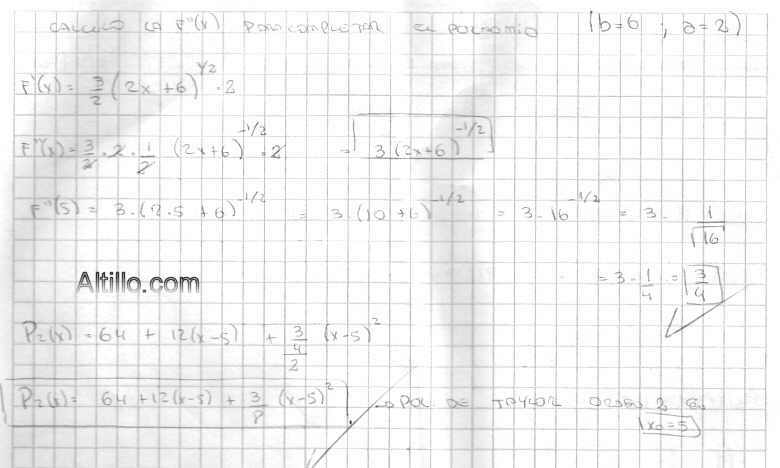 CALCULO LA F''(x) PARA COMPLETAR EL POLINOMIO (b=6 ; a=2)
F'(x) = 3/2 (2x+6)^1/2 · 2
F''(x) = 3/2 · 2 · 1/2 (2x+6)^-1/2 · 2 = 3(2x+6)^-1/2
F''(5) = 3·(2·5+6)^-1/2 = 3·(10+6)^-1/2 = 3·16^-1/2 = 3· 1/√16
= 3·1/4 = 3/4
Altillo.com
P2(x) = 64 + 12(x-5) + 3/4/2 (x-5)^2
P2(x) = 64 + 12(x-5) + 3/8 (x-5)^2 → POL DE TAYLOR ORDEN 2 EN
x0=5